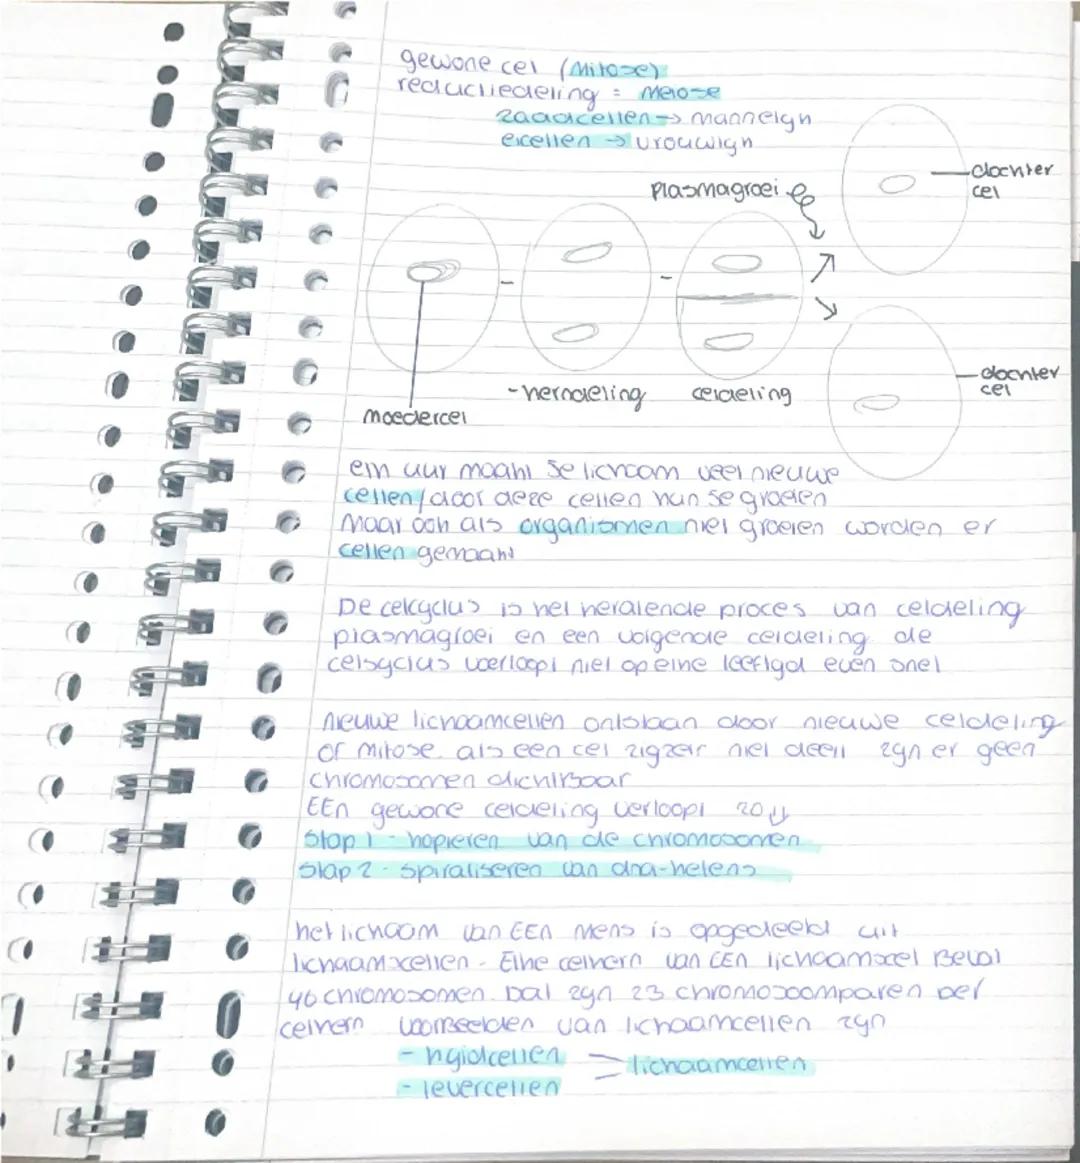 gewone cel (Mitose)
reductiedeling = Meiose
zaadcellen → mannelyn
eicellen → vrouwlyn
Plasmagroei
dochter
cel
dochter
cel
- kerndeling
celdeling
moedercel
ein uur maakt je lichaam veel nieuwe
cellen / door deze cellen kun je groeien
Maar ook als organismen niet groeien worden er
cellen gemaakt
De celcyclus is het heralende proces van celdeling
plasmagroei en een volgende celdeling. de
celsyclus verloopt niet op eine leeftyd even snel
Nieuwe lichaamcellen ontstaan door nieuwe celdeling
of mitose. als een cel zigzelf niet deelt zyn er geen
chromosomen dichtbaar
EEn gewone celdeling verloopt zo ↓↓
Stap 1 - kopieren van de chromosomen
Stap 2 - spiraliseren van dna-ketens
het lichaam van EEn mens is opgedeeld uit
lichaamscellen. Elke celkern van EEn lichaamscel Bevat
46 chromosomen. Dat zyn 23 chromosoomparen per
celkern voorbeelden van lichaamcellen zyn
- huidcellen
lichaamcellen
- levercellen